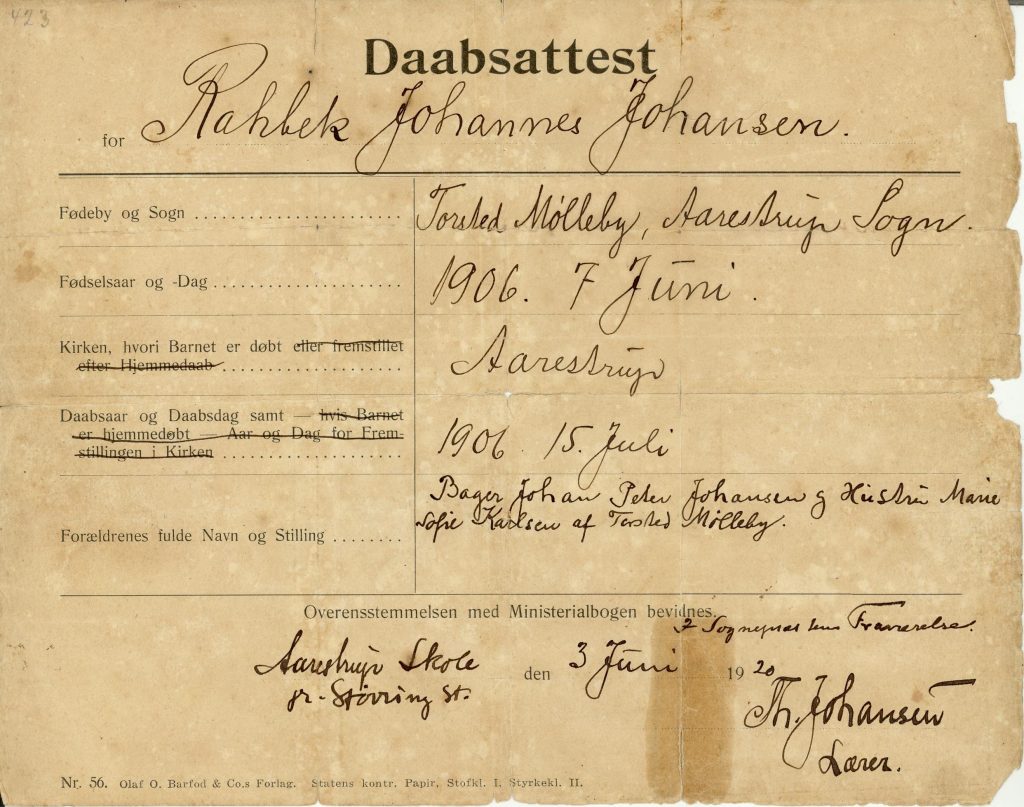 423
Daabsattest
for Rahbek Johannes Johansen.
Fødeby og Sogn Torsted Mølleby, Aarestrup Sogn.
Fødselsaar og -Dag 1906. 7 Juni.
Kirken, hvori Barnet er døbt eller fremstillet
efter Hjemmedaab Aarestrup
Daabsaar og Daabsdag samt — hvis Barnet
er hjemmedøbt — Aar og Dag for Frem-
stillingen i Kirken 1906 15. Juli
Bager Johan Peter Johansen og Hustru Marie
Sofie Karlsen af Torsted Mølleby.
Forældrenes fulde Navn og Stilling
Overensstemmelsen med Ministerialbogen bevidnes.
I Sognepræstens Fraværelse.
Aarestrup Skole den 3 Juni 1920
pr. Støvring St.
Th. Johansen
Lærer.
Nr. 56. Olaf O. Barfod & Co.s Forlag. Statens kontr. Papir, Stofkl. I, Styrkekl. II.